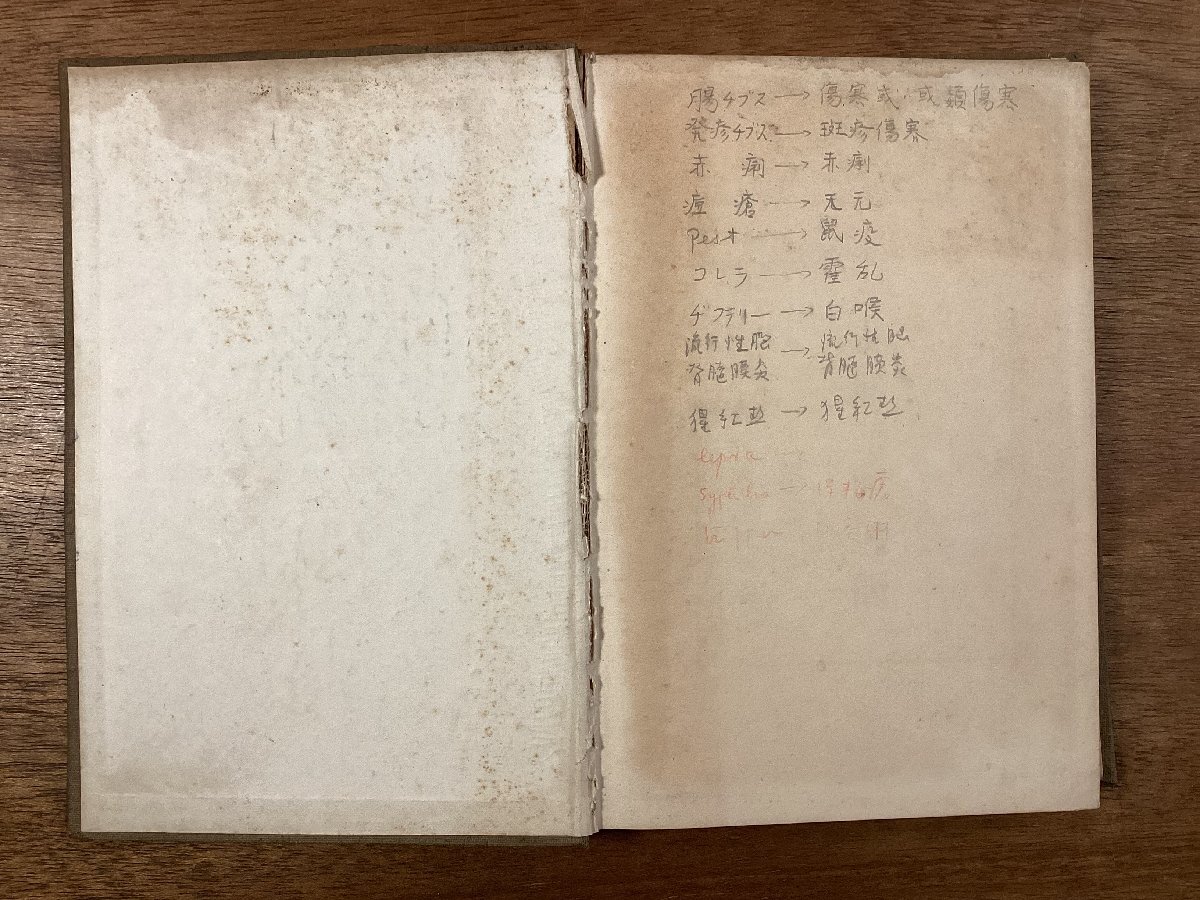 腸チブス → 傷寒或 或類傷寒
発疹チブス → 斑疹傷寒
赤痢 → 赤痢
痘瘡 → 天
Pest → 鼠疫
コレラ → 霍乱
ヂフテリー → 白喉
流行性脳 → 流行性脳
脊髄膜炎 背髄膜炎
猩紅熱 → 猩紅熱
lepra
→ 病